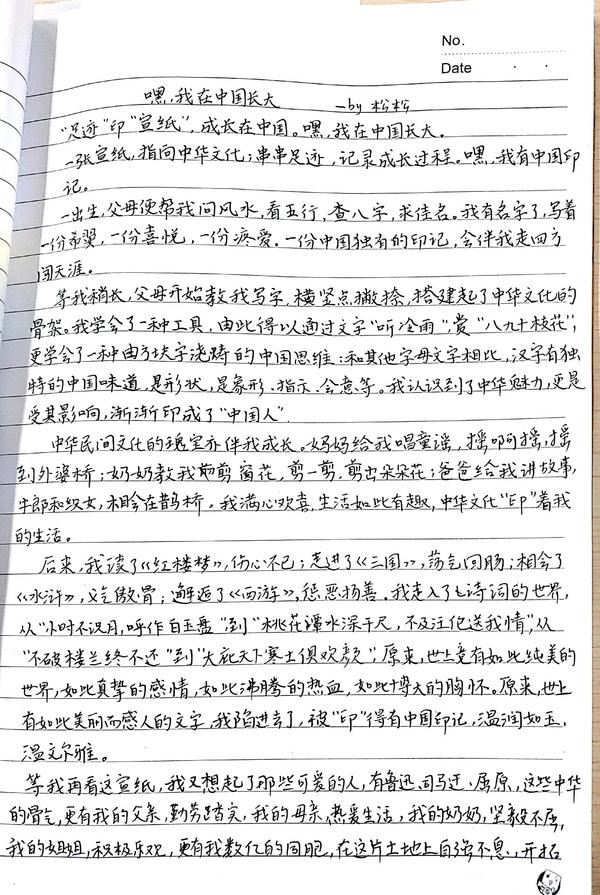 No.
Date
嘿,我在中国长大 —by 松松
"足迹"印"宣纸",成长在中国。嘿,我在中国长大。
一张宣纸,指向中华文化;串串足迹,记录成长过程。嘿,我有中国印
记。
一出生,父母便帮我问风水,看五行,查八字,求佳名。我有名字了,写着
一份希望,一份喜悦,一份疼爱.一份中国独有的印记,会伴我走四方
闯天涯。
等我稍长,父母开始教我写字,横竖点撇捺,搭建起了中华文化的
骨架。我学会了一种工具,由此得以通过文字"听冷雨",赏"八九十枝花",
更学会了一种由方块字浇铸的中国思维:和其他字母文字相比,汉字有独
特的中国味道,是形状,是象形、指示、会意等。我认识到了中华魅力,更是
受其影响,渐渐印成了"中国人".
中华民间文化的瑰宝亦伴我成长。妈妈给我唱童谣,摇啊摇,摇
到外婆桥;奶奶教我剪窗花,剪一剪,剪出朵朵花;爸爸给我讲故事,
牛郎和织女,相会在鹊桥。我满心欢喜,生活如此有趣,中华文化"印"着我
的生活。
后来,我读了《红楼梦》,伤心不已;走进了《三国》,荡气回肠;相会了
《水浒》,义气傲骨;邂逅了《西游》,惩恶扬善.我走入了古诗词的世界,
从"小时不识月,呼作白玉盘"到"桃花潭水深千尺,不及汪伦送我情",从
"不破楼兰终不还"到"大庇天下寒士俱欢颜",原来,世上竟有如此纯美的
世界,如此真挚的感情,如此沸腾的热血,如此博大的胸怀。原来,世上
有如此美丽而感人的文字,我陷进去了,被"印"得有中国印记,温润如玉,
温文尔雅。
等我再看这宣纸,我又想起了那些可爱的人,有鲁迅、司马迁、屈原,这些中华
的骨气,更有我的父亲,勤劳踏实,我的母亲,热爱生活,我的奶奶,坚毅不屈,
我的姐姐,积极乐观,更有我数亿的同胞,在这片土地上自强不息,开拓